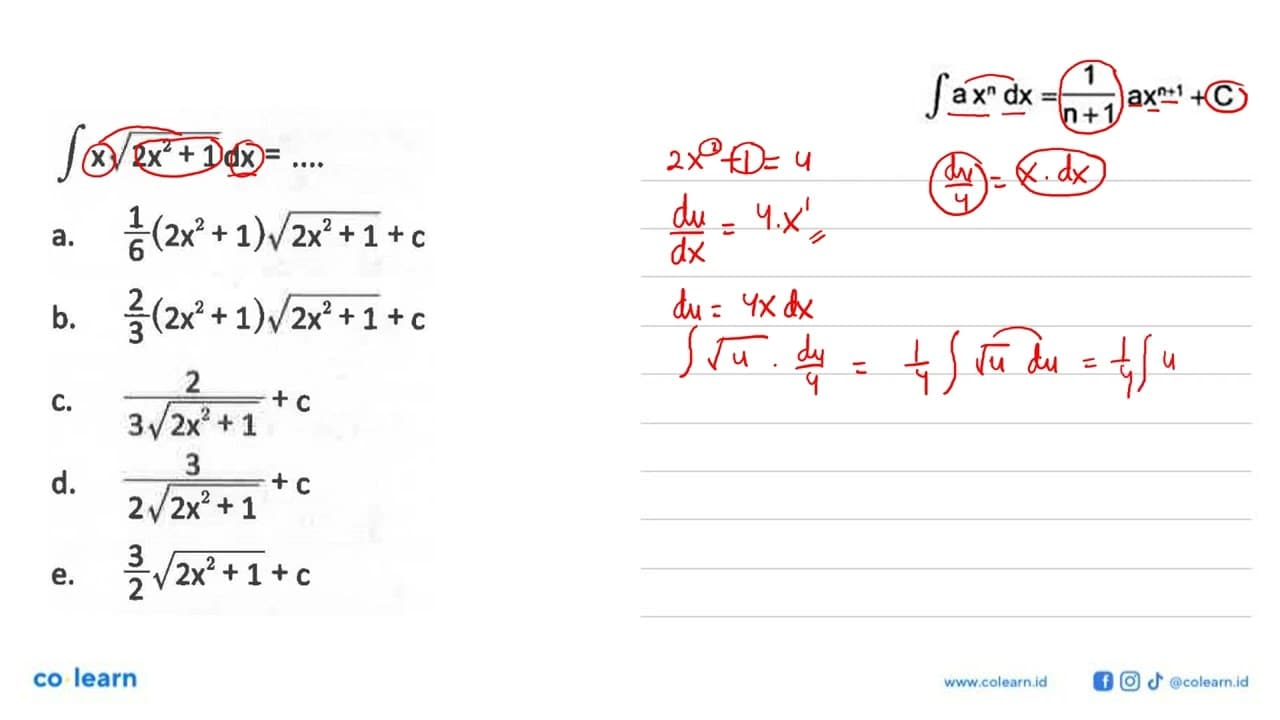 ∫ x√(2x² + 1) dx = ....
a. 1/6 (2x² + 1)√(2x² + 1) + c
b. 2/3 (2x² + 1)√(2x² + 1) + c
c. 2/(3√(2x² + 1)) + c
d. 3/(2√(2x² + 1)) + c
e. 3/2 √(2x² + 1) + c
∫ a xⁿ dx = 1/(n + 1) axⁿ⁺¹ + C
2x² + 1 = u
du/4 = x . dx
du/dx = 4.x¹
du = 4x dx
∫ √u . du/4 = 1/4 ∫ √u du = 1/4 ∫ u
co learn
www.colearn.id
@colearn.id